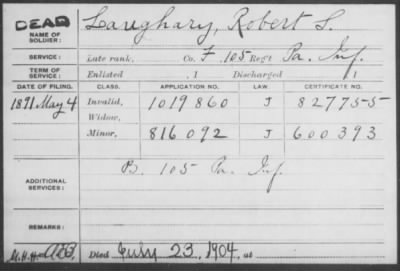 DEAD
NAME OF SOLDIER: Laughary, Robert S.
SERVICE: Late rank, Co. F, 105 Reg't Pa. Inf.
TERM OF SERVICE: Enlisted , 1 Discharged , 1
DATE OF FILING. CLASS. APPLICATION NO. LAW. CERTIFICATE NO.
1891 May 4 Invalid, 1019860 J 827755
Widow,
Minor, 816092 J 600393
B. 105 Pa. Inf.
ADDITIONAL SERVICES:
REMARKS:
Died July 23, 1904, at